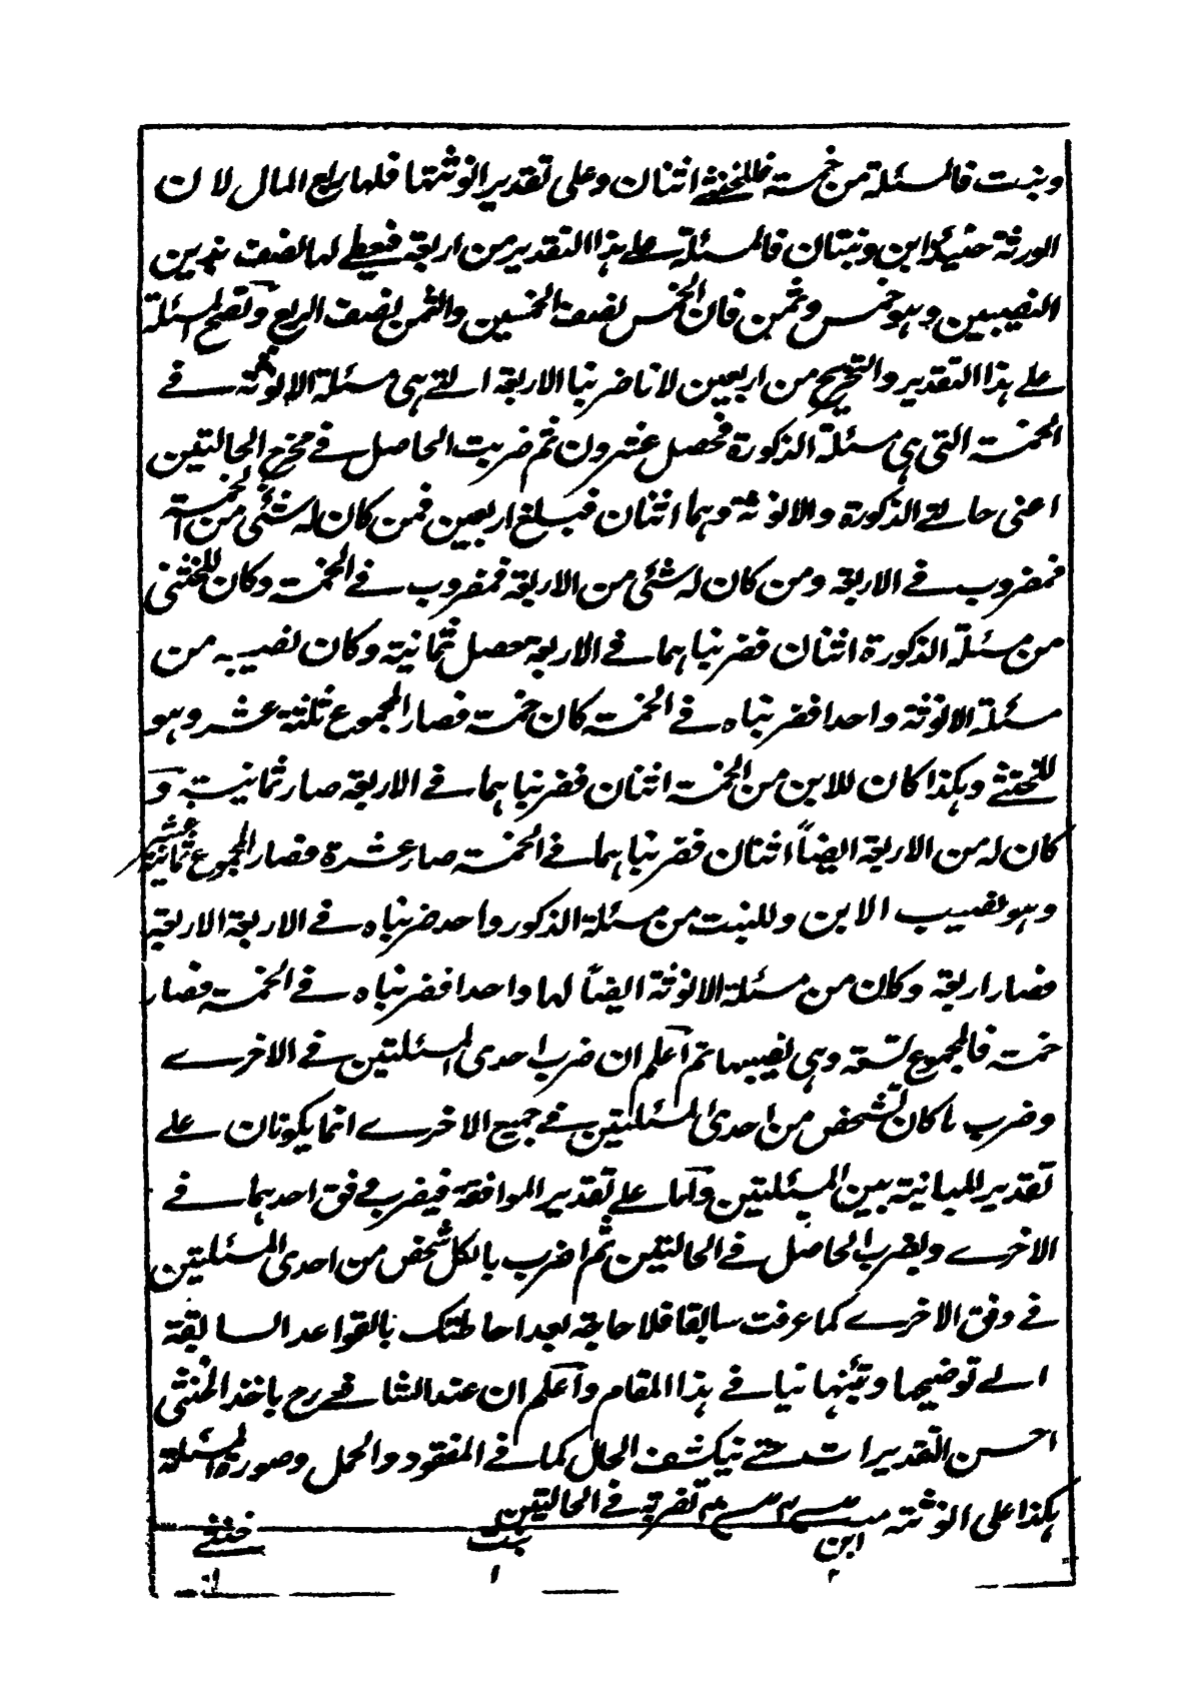 وبنت فالمسئلة من خمسة فللخنثے اثنان وعلى تقدير انوثتها فلها ربع المال لان
الورثة حينئذ ابن وبنتان فالمسئلة علے هذا التقدير من اربعة فيعطے لها نصف هذين
النصيبين وهو خمس وثمن فان الخمس نصف الخمسين والثمن نصف الربع وتصح المسئلة
علے هذا التقدير والتخريج من اربعين لانا ضربنا الاربعة التے هى مسئلة الانوثة فے
الخمسة التى هى مسئلة الذكورة فحصل عشرون ثم ضربت الحاصل فے مخرج الحالتين
اعنى حالتے الذكورة والانوثة وهما اثنان فبلغ اربعين فمن كان له شئى من الخمسة
فمضروب فے الاربعة ومن كان له شئى من الاربعة فمضروب فے الخمسة وكان للخنثى
من مسئلة الذكورة اثنان فضربناهما فے الاربعة حصل ثمانية وكان نصيبه من
مسئلة الانوثة واحدا فضربناه فے الخمسة كان خمسة فصار المجموع ثلثة عشر وهو
للخنثے وهكذا كان للابن من الخمسة اثنان فضربناهما فے الاربعة صار ثمانية و
كان له من الاربعة ايضاً اثنان فضربناهما فے الخمسة صار عشرة فصار المجموع ثمانية عشر
وهو نصيب الابن وللبنت من مسئلة الذكور واحد ضربناه فے الاربعة الاربعة
فصار اربعة وكان من مسئلة الانوثة ايضاً لها واحدا فضربناه فے الخمسة فصار
خمسة فالمجموع تسعة وهى نصيبها ثم اعلم ان ضرب احدى المسئلتين فے الاخرے
وضرب ما كان لشخص من احدى المسئلتين فے جميع الاخرے انما يكونان علے
تقدير المباينة بين المسئلتين واما علے تقدير الموافقة فيضرب وفق احدهما فے
الاخرے ويضرب الحاصل فے الحالتين ثم اضرب بالكل شخص من احدى المسئلتين
فے وفق الاخرے كما عرفت سابقا فلا حاجة بعد احاطتك بالقواعد السابقة
الے توضيحها وتبينها ثانيا فے هذا المقام واعلم ان عند الشافعے رح ياخذ الخنثى
احسن التقديرات حتے ينكشف الحال كما فے المفقود والحمل وصورة المسئلة
هكذا على انوثته تضربه فے الحالتين
ابن بنت خنثے
٢ ١